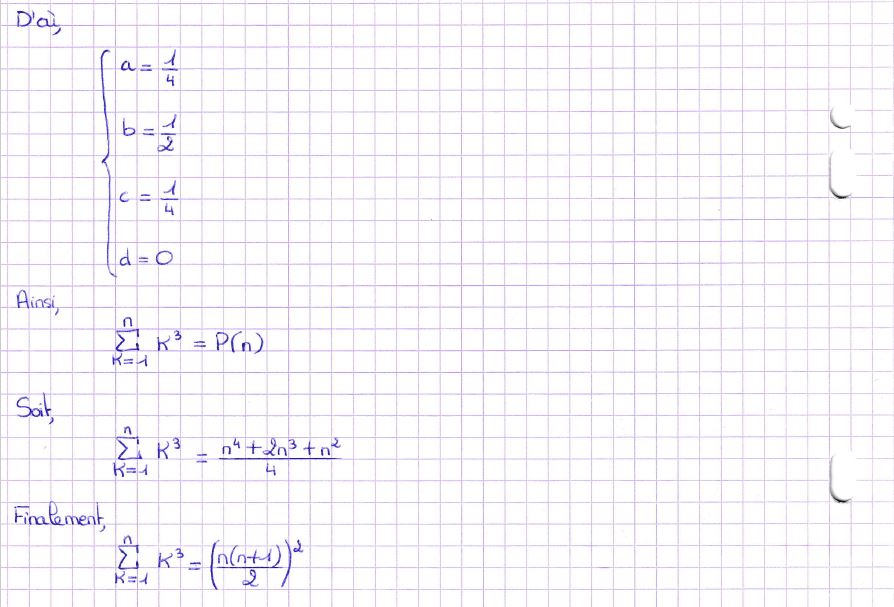 D'où,
a = 1/4
b = 1/2
c = 1/4
d = 0
Ainsi,
∑_{K=1}^{n} K³ = P(n)
Soit,
∑_{K=1}^{n} K³ = (n⁴ + 2n³ + n²)/4
Finalement,
∑_{K=1}^{n} K³ = (n(n+1)/2)²